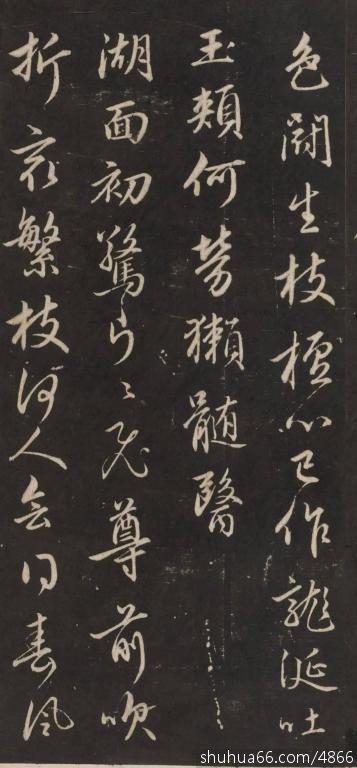 色鬬生枝檀心已作龍涎吐
玉頰何勞獺髓醫
湖面初驚片〻飛尊前吹
折最繁枝何人會得春風
shuhua66.com/4866